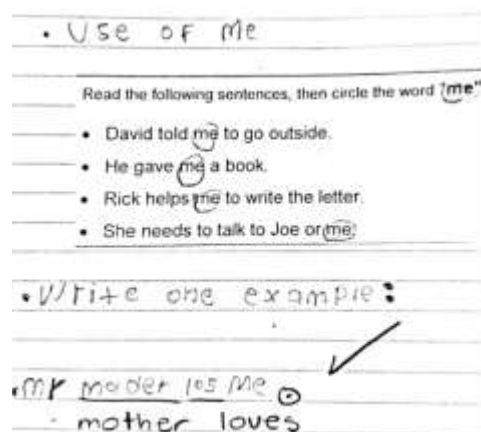 • Use of me
Read the following sentences, then circle the word "me"
• David told me to go outside.
• He gave me a book.
• Rick helps me to write the letter.
• She needs to talk to Joe or me.
• Write one example:
• My moder los Me .
mother loves